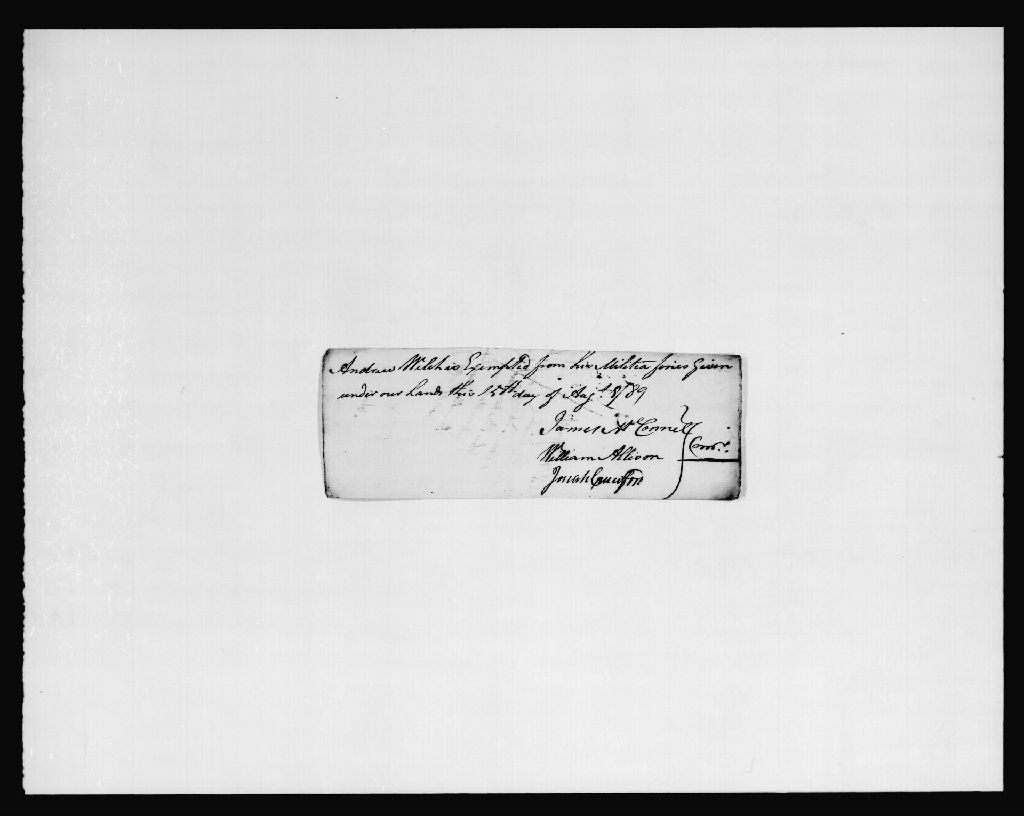 Andrew Welch is Exempted from his Militia fines Given
under our hands this 15th day of Augt. 1789
James McConnell
William Allison Comrs.
Josiah Crawford